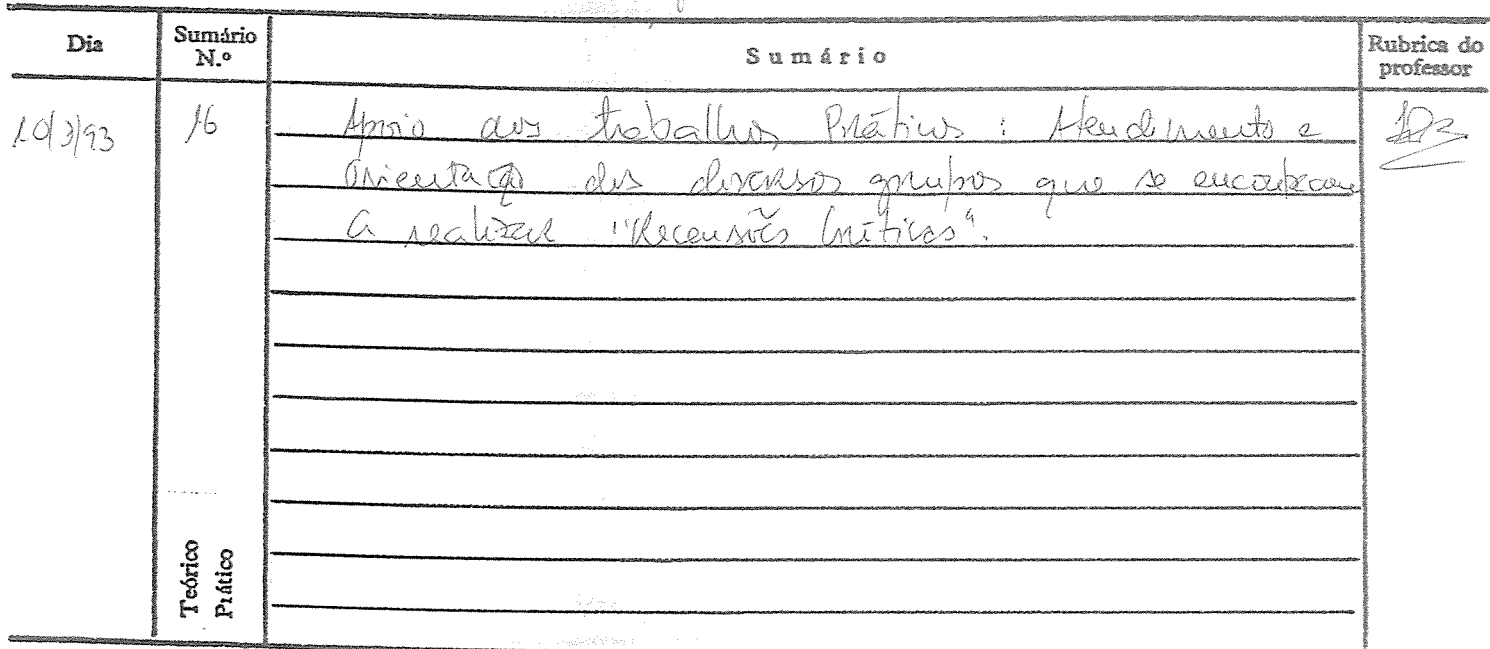 Dia Sumário N.º Sumário Rubrica do professor
10/3/93 16 Apoio aos trabalhos Práticos : Atendimento e
Orientação dos diversos grupos que se encontram
a realizar "Recensões Críticas".
Teórico
Prático